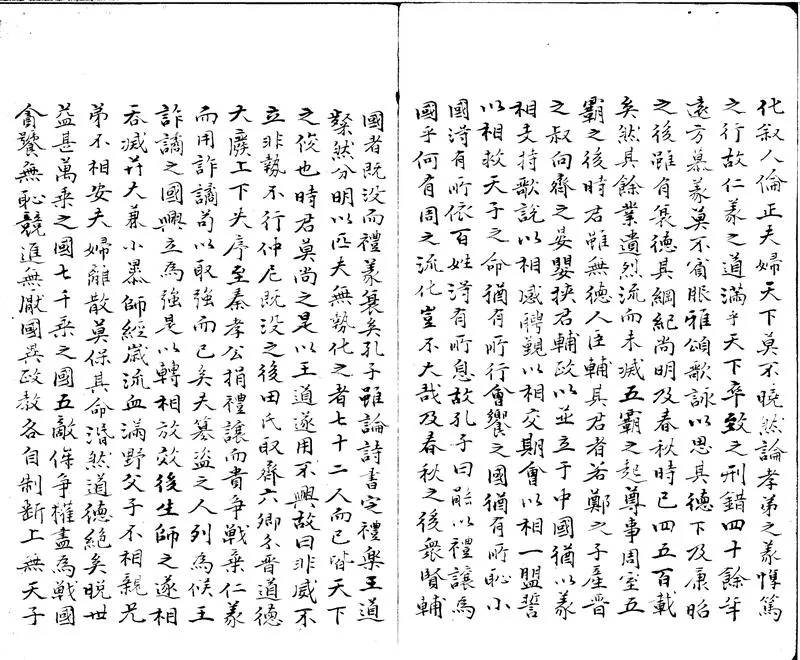 化叙人倫正夫婦天下莫不曉然論孝弟之義惇篤
之行故仁義之道滿乎天下卒致之刑錯四十餘年
遠方慕義莫不賓服雅頌歌詠以思其德下及康昭
之後雖有衰德其綱紀尚明及春秋時已四五百載
矣然其餘業遺烈流而未滅五霸之起尊事周室五
霸之後時君雖無德人臣輔其君者若鄭之子產晋
之叔向齊之晏嬰挾君輔政以並立于中國猶以義
相支持歌說以相感聘覲以相交期會以相一盟誓
以相救天子之命猶有所行會饗之國猶有所恥小
國得有所依百姓得有所息故孔子曰能以禮讓為
國乎何有周之流化豈不大哉及春秋之後衆賢輔
國者既没而禮義衰矣孔子雖論詩書定禮樂王道
粲然分明以匹夫無勢化之者七十二人而已皆天下
之俊也時君莫尚之是以王道遂用不興故曰非威不
立非勢不行仲尼既没之後田氏取齊六卿分晋道德
大廢上下失序至秦孝公捐禮讓而貴争戰棄仁義
而用詐譎苟以取強而已矣夫篡盗之人列為侯王
詐譎之國興立為強是以轉相放效後生師之遂相
吞滅并大兼小暴師經歲流血滿野父子不相親兄
弟不相安夫婦離散莫保其命湣然道德絶矣晚世
益甚萬乘之國七千乘之國五敵侔争權盡為戰國
貪饕無恥競進無厭國異政教各自制斷上無天子